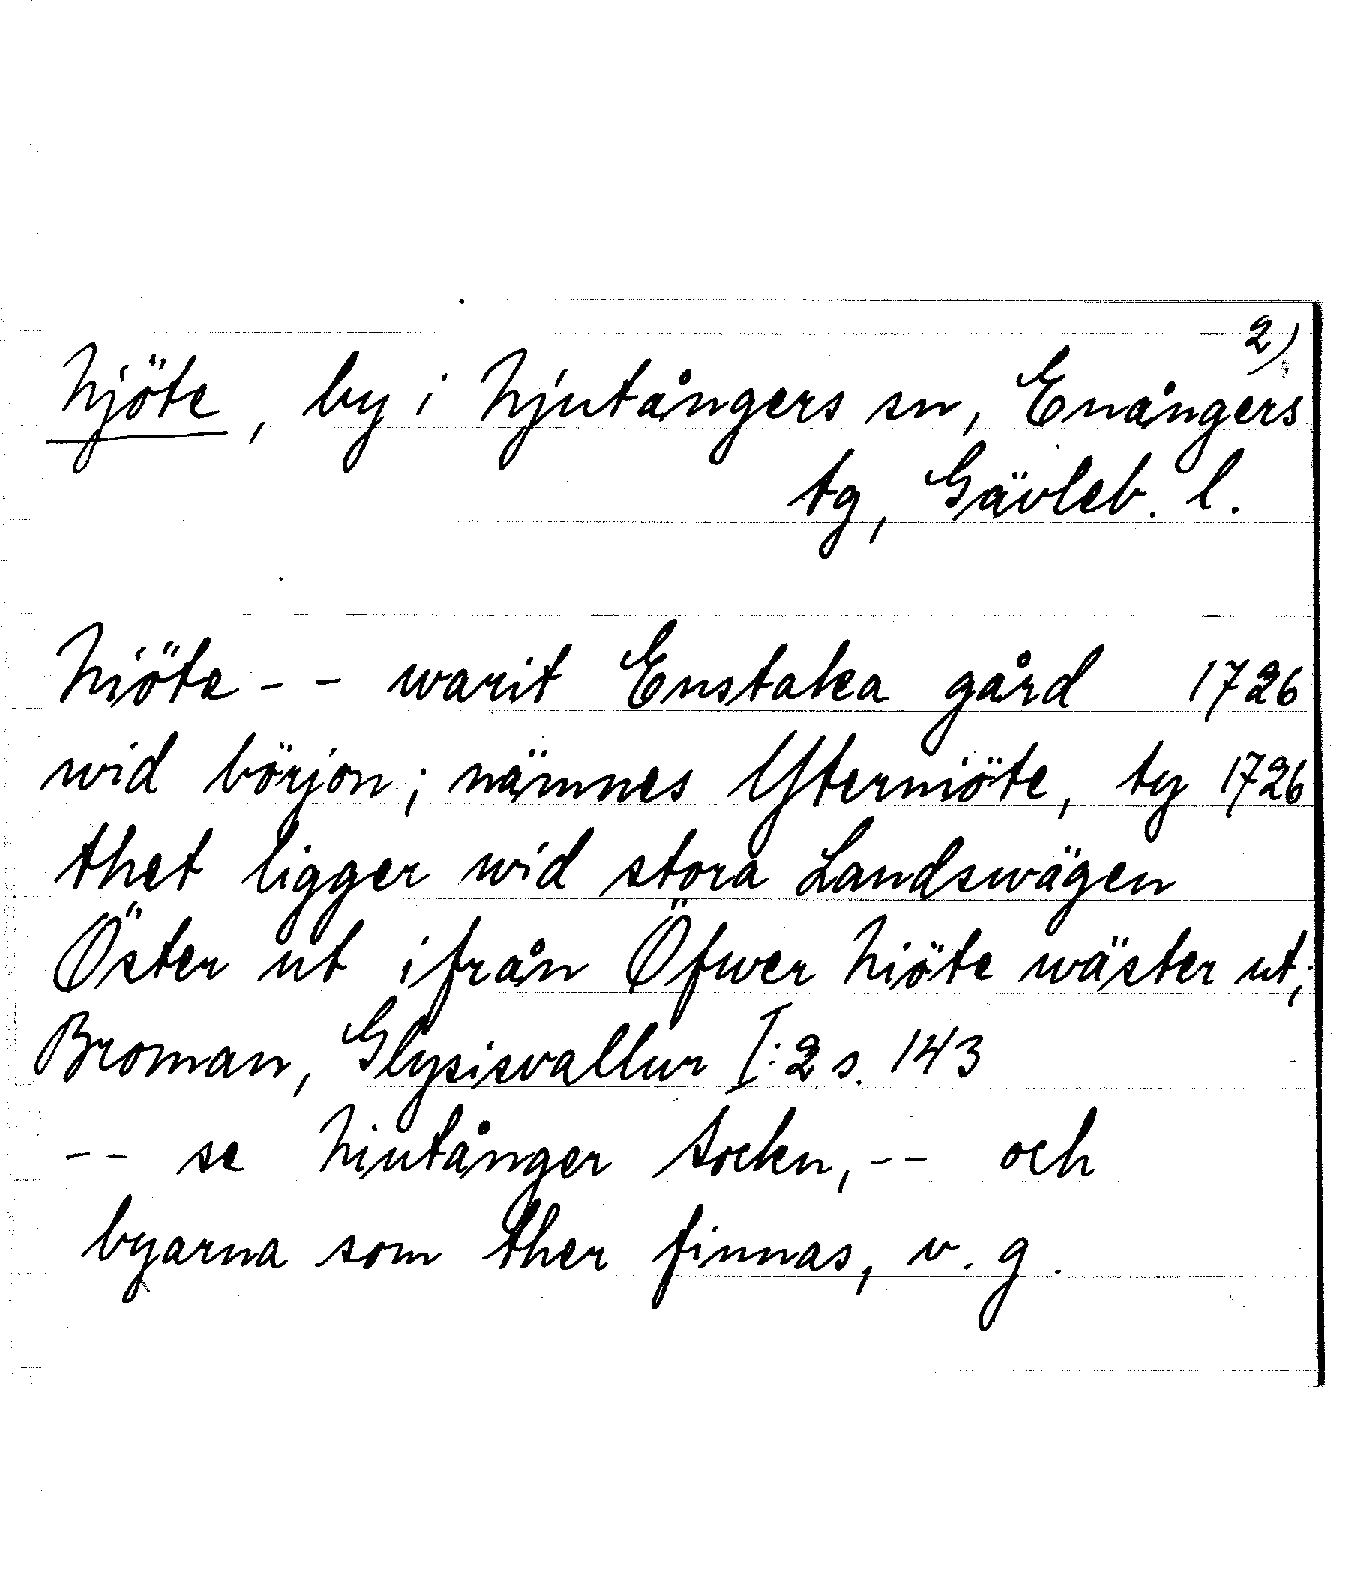 2)
Njöte, by i Njutångers sn, Enångers
tg, Gävleb. l.
Niöte -- warit Enstaka gård 1726
wid börjon; nämnes Yterniöte, ty 1726
thet ligger wid stora Landswägen
Öster ut ifrån Öfwer Niöte wäster ut;
Broman, Glysisvallur I:2 s. 143
-- se Niutånger socken, -- och
byarna som ther finnas, v. g.